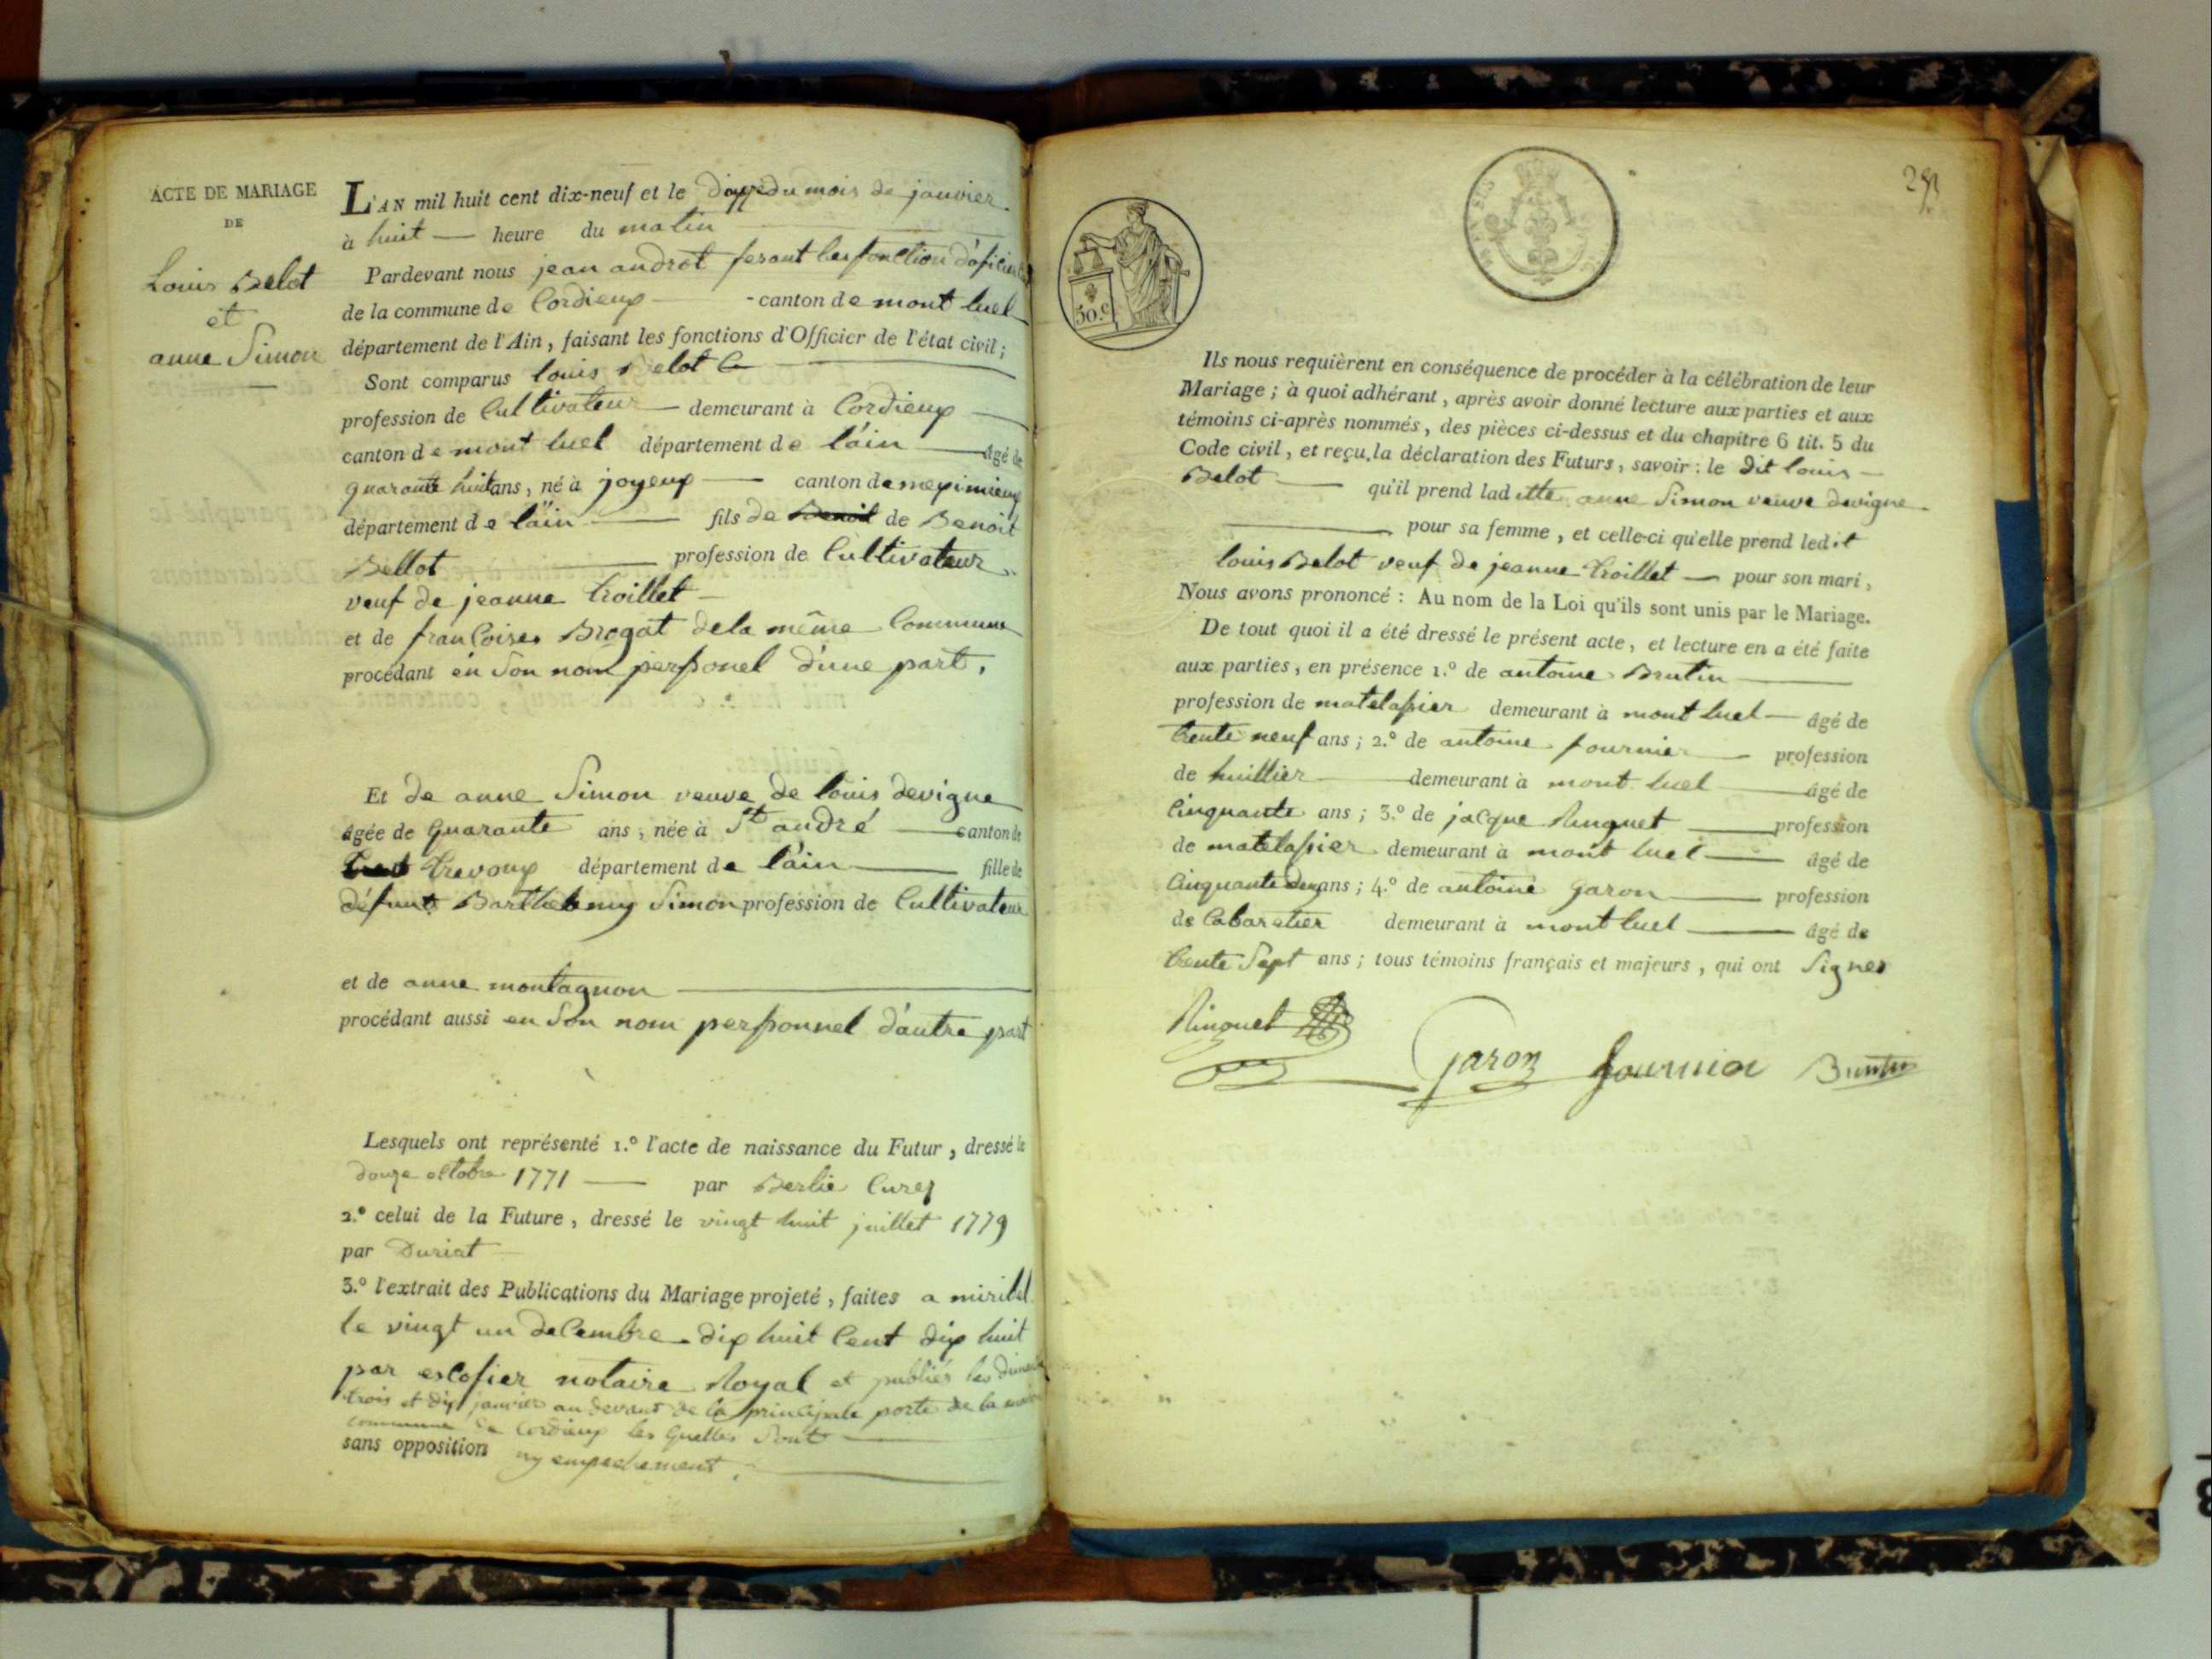 ACTE DE MARIAGE
DE
Louis Belot
et
anne Simon
L'AN mil huit cent dix-neuf et le du mois de janvier
à huit heure du matin
Pardevant nous jean androt fesant les fonction d'oficier
de la commune de Cordieux canton de mont luel
département de l'Ain, faisant les fonctions d'Officier de l'état civil;
Sont comparus louis Belot
profession de Cultivateur demeurant à Cordieux
canton de mont luel département de l'ain âgé de
quarante huit ans, né à joyeux canton de meximieux
département de l'ain fils de Benoit de Benoit
Bellot profession de Cultivateur
veuf de jeanne troillet
et de francoises Brogat de la même Commune
procédant en Son nom personel d'une part,
Et de anne Simon veuve de louis devigne
âgée de quarante ans, née à St andré canton de
trevoux département de l'ain fille de
défunt Barthelemy Simon profession de Cultivateur
et de anne montagnon
procédant aussi en Son nom personnel d'autre part
Lesquels ont représenté 1.º l'acte de naissance du Futur, dressé le
douze octobre 1771 par Berlie Curez
2.º celui de la Future, dressé le vingt huit juillet 1779
par Duriat
3.º l'extrait des Publications du Mariage projeté, faites a miribel
le vingt un decembre dix huit Cent dix huit
par escofier notaire Royal et publiés les
trois et dix janvier au devant de la principale porte de la
commune de Cordieux les quelles Sont
sans opposition ny empechement
30.c
Ils nous requièrent en conséquence de procéder à la célébration de leur
Mariage; à quoi adhérant, après avoir donné lecture aux parties et aux
témoins ci-après nommés, des pièces ci-dessus et du chapitre 6 tit. 5 du
Code civil, et reçu la déclaration des Futurs, savoir: le dit louis
Belot qu'il prend laditte anne Simon veuve devigne
pour sa femme, et celle-ci qu'elle prend ledit
louis Belot veuf de jeanne troillet pour son mari,
Nous avons prononcé: Au nom de la Loi qu'ils sont unis par le Mariage.
De tout quoi il a été dressé le présent acte, et lecture en a été faite
aux parties, en présence 1.º de antoine Brutin
profession de matelassier demeurant à mont luel âgé de
trente neuf ans; 2.º de antoine fournier profession
de huillier demeurant à mont luel âgé de
Cinquante ans; 3.º de jacque Ringuet profession
de matelassier demeurant à mont luel âgé de
Cinquante deux ans; 4.º de antoine garon profession
de Cabaretier demeurant à mont luel âgé de
trente Sept ans; tous témoins français et majeurs, qui ont Signes
Ringuet
Garon fournier Brutin